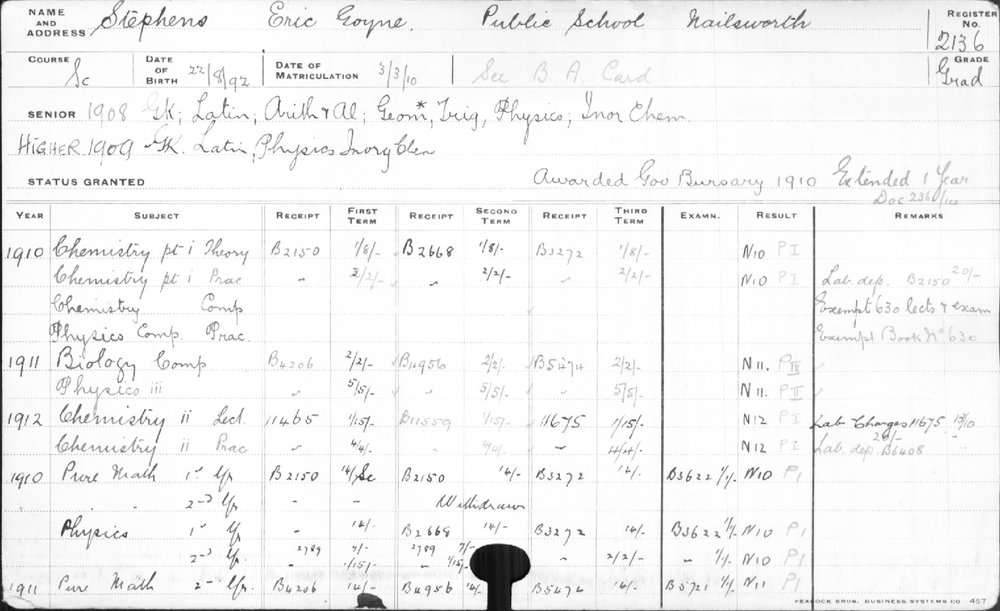 NAME AND ADDRESS Stephens Eric Goyne. Public School Nailsworth REGISTER No. 2136
COURSE Sc DATE OF BIRTH 22/8/92 DATE OF MATRICULATION 3/3/10 See B A. Card GRADE Grad
SENIOR 1908 GK; Latin; Arith & Al; Geom*, Trig, Physics; Inor Chem.
HIGHER 1909 GK. Latin, Physics Inorg Chem
STATUS GRANTED Awarded Gov Bursary 1910 Extended 1 Year
Doc 236/14
YEAR SUBJECT RECEIPT FIRST TERM RECEIPT SECOND TERM RECEIPT THIRD TERM EXAMN. RESULT REMARKS
1910 Chemistry pt i Theory B2150 1/8/- B2668 1/8/- B3272 1/8/- N10 P I
Chemistry pt i Prac " 2/2/- " 2/2/- " 2/2/- N10 P I Lab. dep. B2150 20/-
Chemistry Comp Exempt 630 lects & exam
Physics Comp. Prac. Exempt Book No 630
1911 Biology Comp B4206 2/2/- B4956 2/2/- B5474 2/2/- N11. P III
Physics iii 5/5/- " 5/5/- 5/5/- N11. P II
1912 Chemistry ii Lect. 11465 1/15/- B11559 1/15/- 11675 1/15/- N12 P I Lab Charges 11675
Chemistry ii Prac " 4/4/- " 4/4/- " 4/4/- N12 P I Lab. dep. 20/- B6408
1910 Pure Math 1st Yr B2150 14/ Sc B2150 14/- B3272 14/- B3622 1/1/- N10 P1
" 2nd Yr - - Withdrawn
Physics 1st Yr - 14/- B2668 14/- B3272 14/- B3622 1/1/- N10 P1
2nd Yr. 2789 7/- 2789 7/- 1/15/- 1/15/- 2/2/- - 1/1/- N10 P1
1911 Pure Math 2nd Yr. B4206 14/- B4956 14/- B5474 14/- B5721 1/1/- N11 P1
PEACOCK BROS. BUSINESS SYSTEMS CO 457